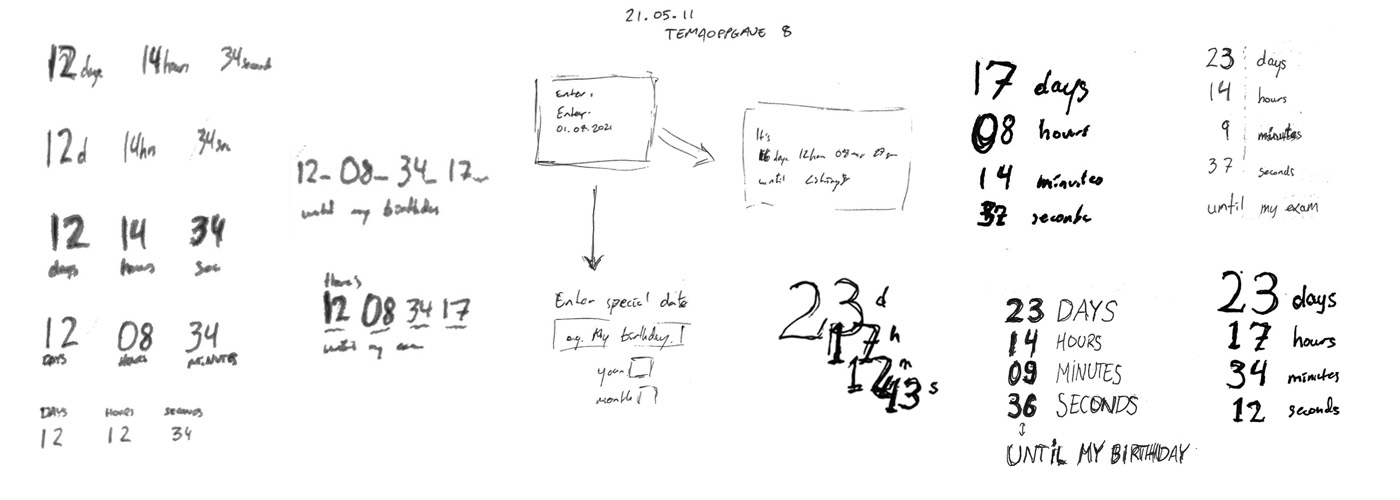 21.05.11
TEMAOPPGAVE 8
12 days 14 hours 34 seconds
12 d 14 hrs 34
12 14 34
days hours sec
12 08 34
DAYS HOURS MINUTES
DAYS HOURS SECONDS
12 12 34
12 08 34 17
until my birthday
12 08 34 17
until my exam
Enter:
Enter:
It's
until
Enter special date
eg. My birthday
year
month
17 days
08 hours
14 minutes
37 seconds
23 d
17 h
12 m
43 s
23 days
14 hours
9 minutes
37 seconds
until my exam
23 DAYS
14 HOURS
09 MINUTES
36 SECONDS
UNTIL MY BIRTHDAY
23 days
17 hours
34 minutes
12 seconds